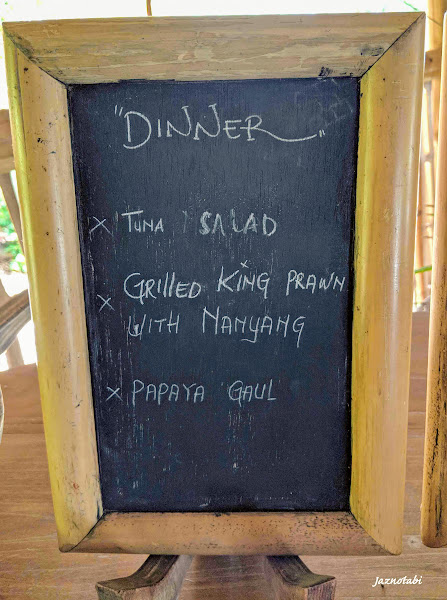 "DINNER"
x TUNA SALAD
x GRILLED KING PRAWN
WITH NANYANG
x PAPAYA GAUL
Jaznotabi